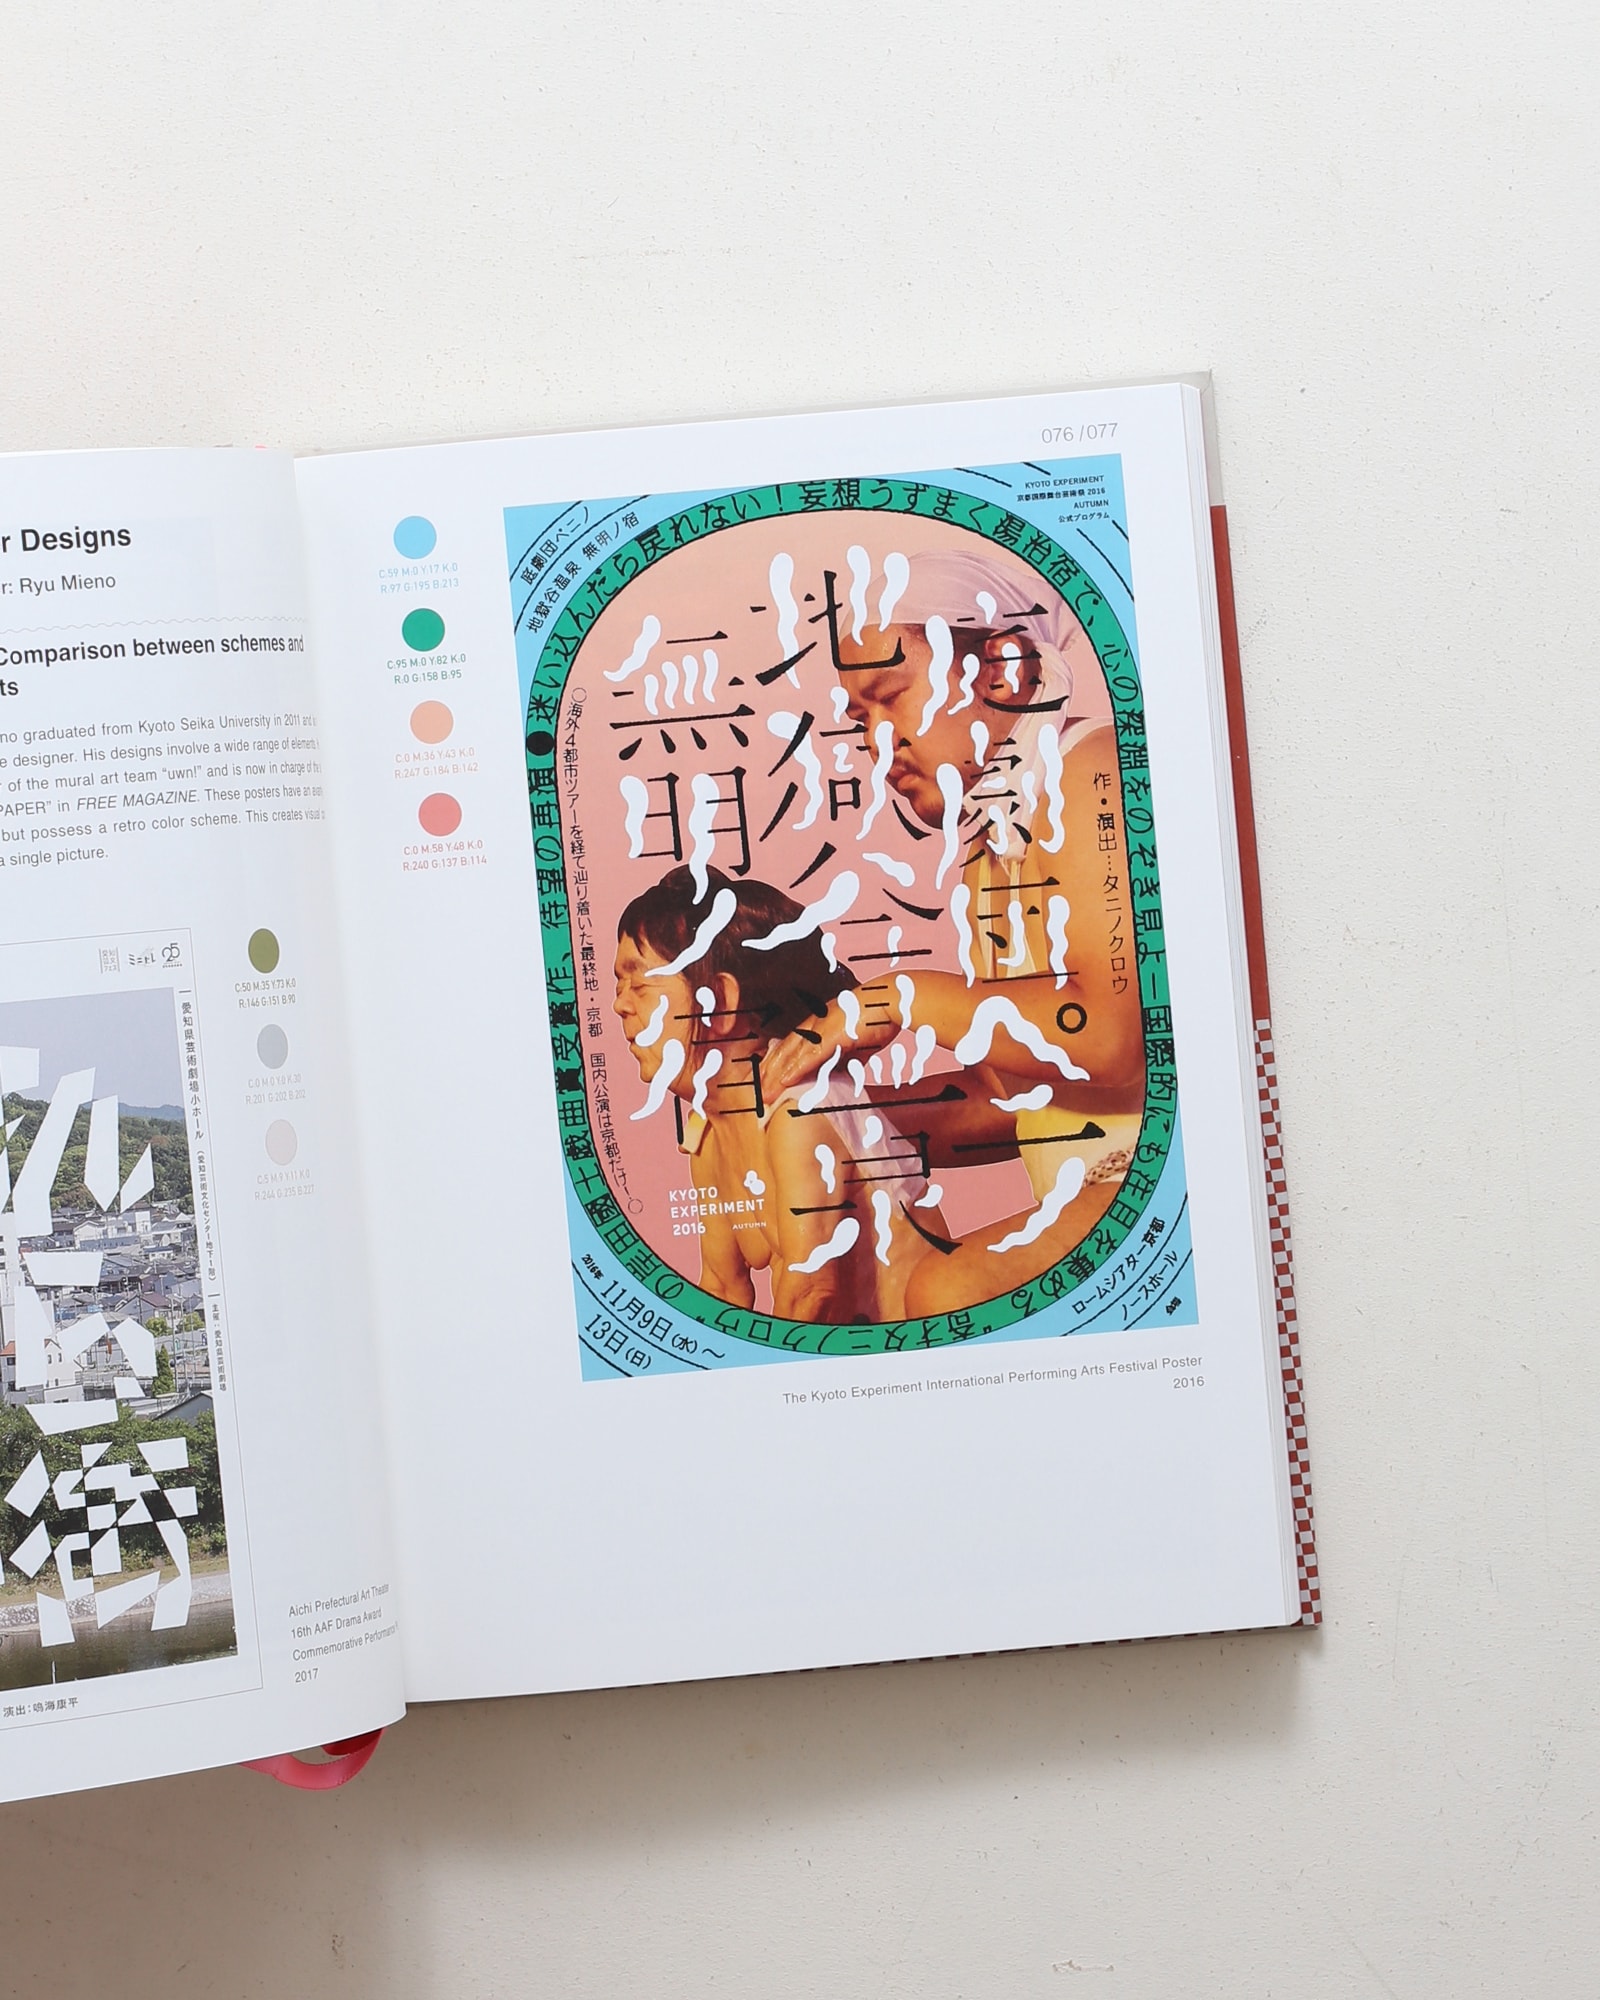 r Designs
r: Ryu Mieno
Comparison between schemes and
ts
no graduated from Kyoto Seika University in 2011 and
e designer. His designs involve a wide range of elements,
r of the mural art team “uwn!” and is now in charge of the
PAPER” in FREE MAGAZINE. These posters have an
but possess a retro color scheme. This creates visual
a single picture.
愛知県芸術劇場小ホール
(愛知芸術文化センター地下1階)
主催:愛知県芸術劇場
25
C:50 M:35 Y:73 K:0
R:146 G:151 B:90
C:0 M:0 Y:0 K:30
R:201 G:202 B:202
C:5 M:9 Y:11 K:0
R:244 G:235 B:227
Aichi Prefectural Art Theater
16th AAF Drama Award
Commemorative Performance
2017
演出:鳴海康平
076 / 077
C:59 M:0 Y:17 K:0
R:97 G:195 B:213
C:95 M:0 Y:82 K:0
R:0 G:158 B:95
C:0 M:36 Y:43 K:0
R:247 G:184 B:142
C:0 M:58 Y:48 K:0
R:240 G:137 B:114
KYOTO EXPERIMENT
京都国際舞台芸術祭 2016
AUTUMN
公式プログラム
庭劇団ペニノ
地獄谷温泉 無明ノ宿
迷い込んだら戻れない!妄想うずまく湯治宿で、心の深淵をのぞき見よ―国際的にも注目を集める“奇才タニノクロウ”の岸田國士戯曲賞受賞作、待望の再演●
庭劇団ペニノ
地獄谷温泉
無明ノ宿
作・演出…タニノクロウ
○海外4都市ツアーを経て辿り着いた最終地・京都 国内公演は京都だけ!○
KYOTO
EXPERIMENT
2016 AUTUMN
2016年
11月9日(水)〜
13日(日)
ロームシアター京都
ノースホール
会場
The Kyoto Experiment International Performing Arts Festival Poster
2016